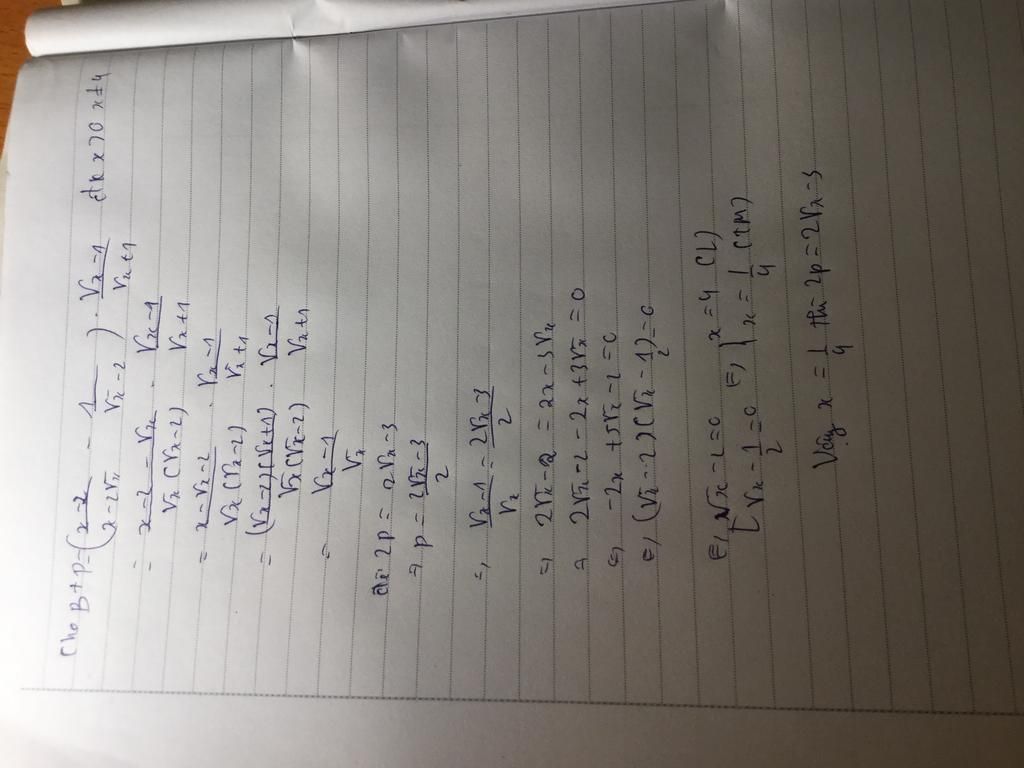 Cho Bt P=(x-2/x-2√x - 1/√x-2) . √x-1/√x+1 đk x>0 x≠4
= x-2-√x/√x(√x-2) . √x-1/√x+1
= x-√x-2/√x(√x-2) . √x-1/√x+1
= (√x-2)(√x+1)/√x(√x-2) . √x-1/√x+1
= √x-1/√x
2P = 2√x-3
=> P = 2√x-3/2
=> √x-1/√x = 2√x-3/2
=> 2√x-2 = 2x-3√x
= 2√x-2-2x+3√x=0
<=> -2x+5√x-2=0
<=> (√x-2)(√x-1/2)=0
<=> [√x-2=0 <=> [x=4 (L)
[√x-1/2=0 [x=1/4 (TM)
Vậy x=1/4 thì 2P=2√x-3